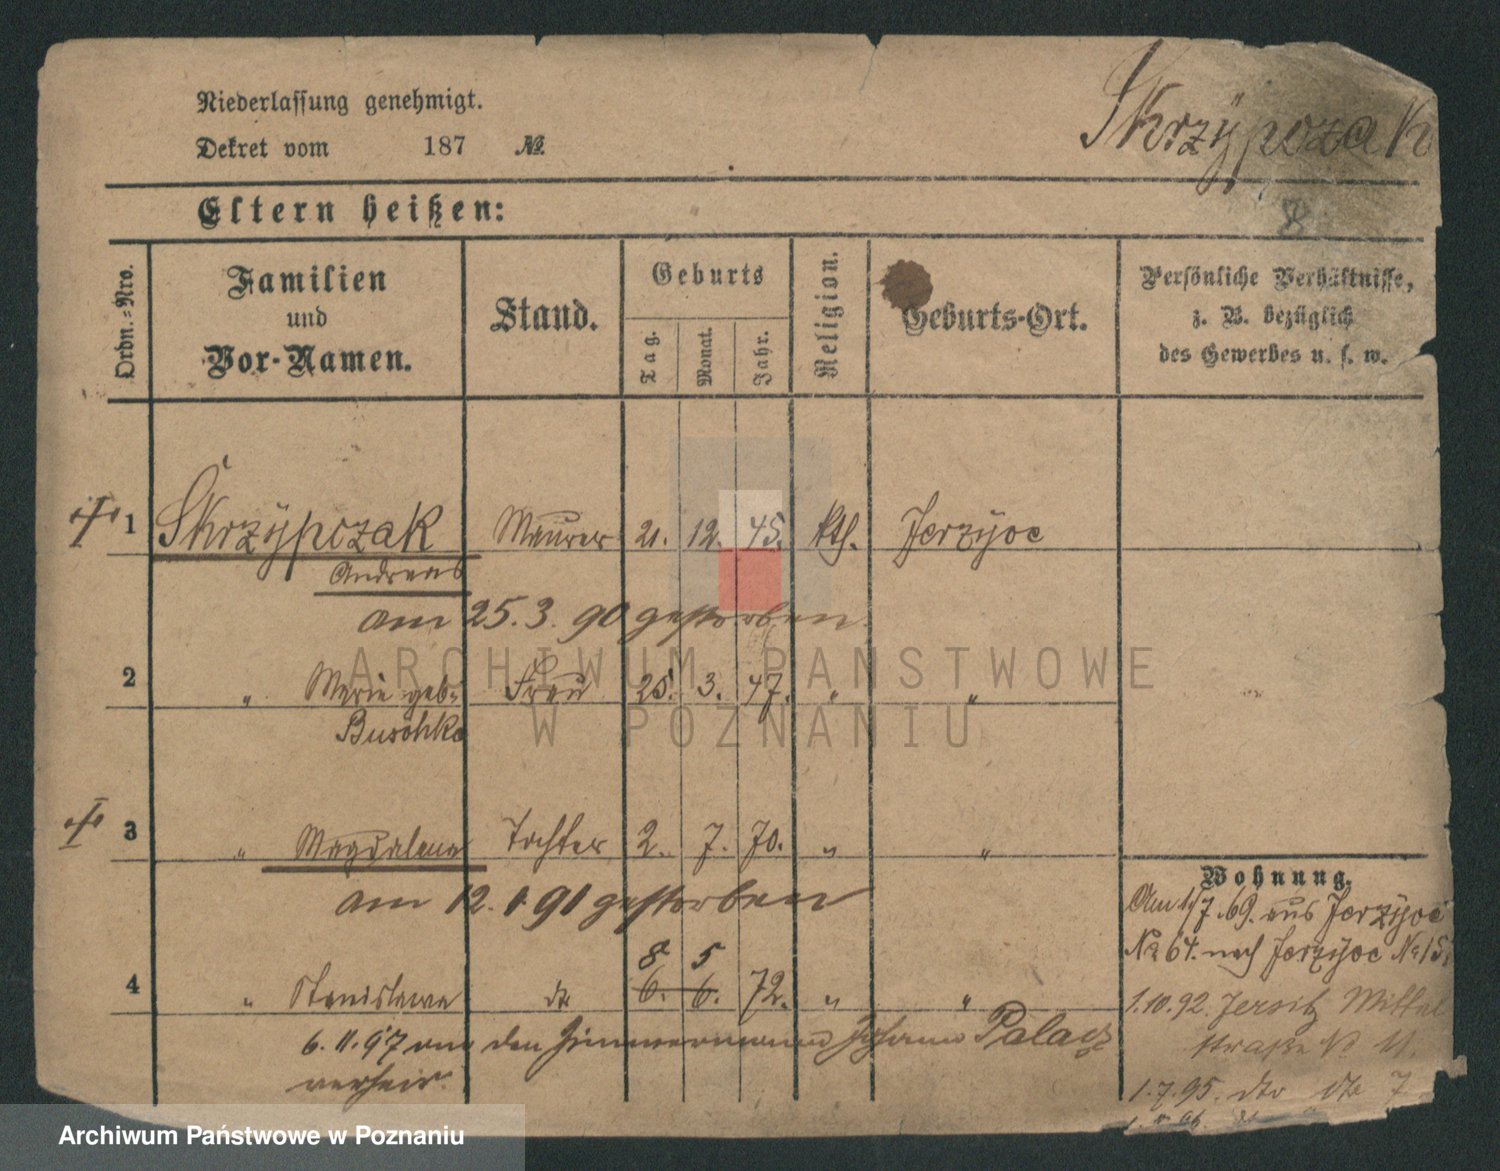 Niederlassung genehmigt.
Dekret vom 187 №.
Skrzÿpczak
8
Eltern heißen:
Ordn.=Nro.
Familien
und
Vor-Namen.
Stand.
Geburts
Tag.
Monat.
Jahr.
Religion.
Geburts-Ort.
Persönliche Verhältnisse,
z. B. bezüglich
des Gewerbes u. s. w.
1 Skrzÿpczak Maurer 21. 12. 45. kth. Jerzyce
Andreas
am 25. 3. 90 gestorben.
ARCHIWUM PAŃSTWOWE
W POZNANIU
2 " Marie geb. Frau 25. 3. 47. " "
Buschke
3 " Magdalena Tochter 2. 7. 70. " "
am 12. 1. 91 gestorben
8 5
4 " Stanislawa dto 6. 6. 72. " "
6. 11. 97 an den Zimmermann Johann Palacz
verheir.
Wohnung.
Am 1/7. 69. aus Jerzyce
No 64. nach Jerzyce No 15.
1.10.92. Jersitz Mittel
straße No 11.
1.7.95. dto dto 7
Archiwum Państwowe w Poznaniu